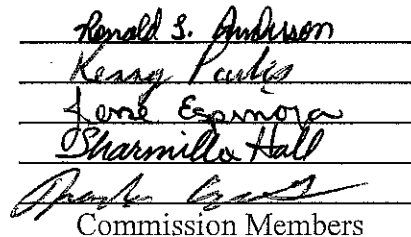 Ronald S. Anderson
Kenny
José Espinoza
Sharmilla Hall
Commission Members